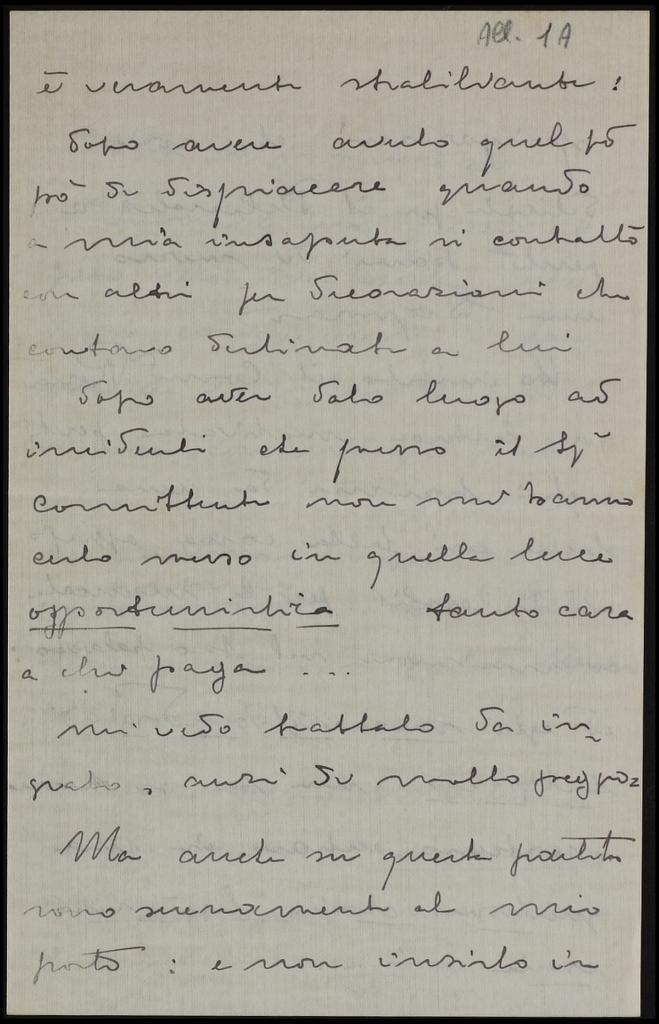 All. 1A
è veramente strabiliante :
dopo avere avuto quel pò
pò di dispiacere quando
a mia insaputa si contrattò
con altri per decorazioni che
contavo destinate a lui
dopo aver dato luogo ad
incidenti che presso il Sig
committente non mi hanno
certo messo in quella luce
opportunistica tanto cara
a chi paga ...
mi vedo trattato da in-
grato, anzi di molto peggio
Ma anche su questa partita
sono serenamente al mio
posto : e non insisto in